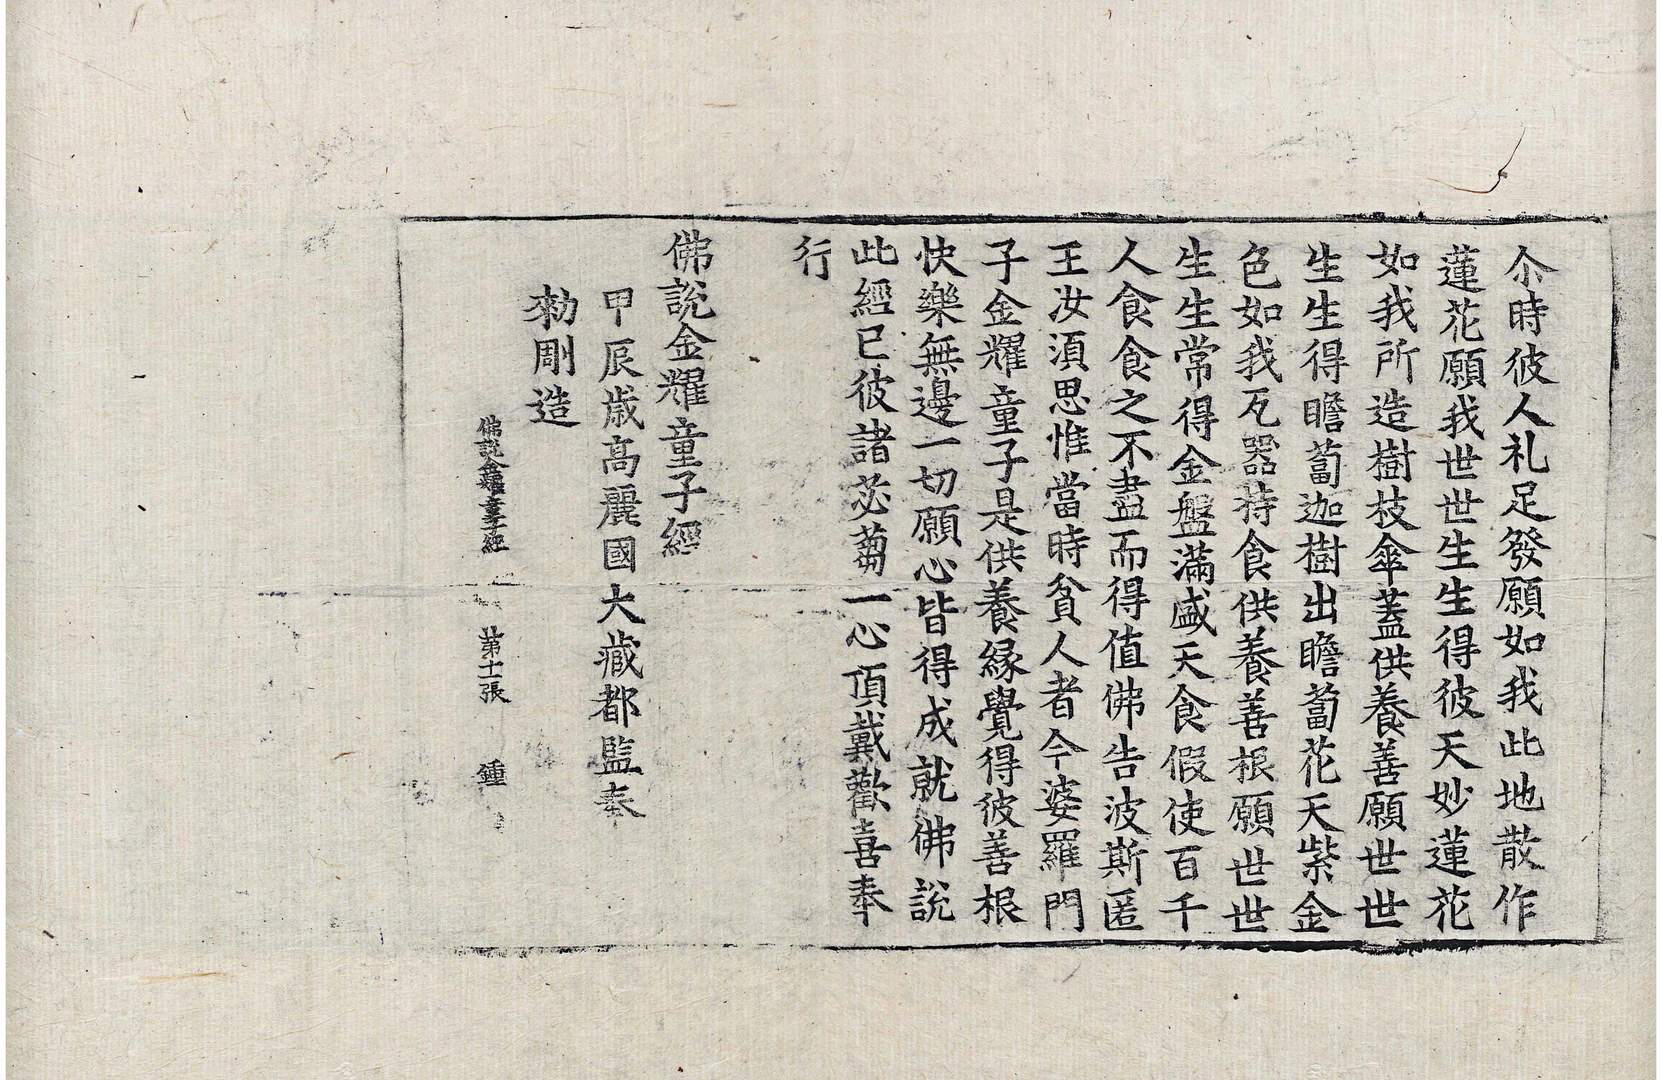 尒時彼人礼足發願如我此地散作
蓮花願我世世生生得彼天妙蓮花
如我所造樹枝傘蓋供養善願世世
生生得瞻蔔迦樹出瞻蔔花天紫金
色如我瓦器持食供養善根願世世
生生常得金盤滿盛天食假使百千
人食食之不盡而得值佛告波斯匿
王汝湏思惟當時貧人者今婆羅門
子金耀童子是供養緣覺得彼善根
快樂無邊一切願心皆得成就佛說
此經已彼諸苾蒭一心頂戴歡喜奉
行
佛說金耀童子經
甲辰歳高麗國大藏都監奉
勑剛造
佛說金耀童子經 第十一張 鍾